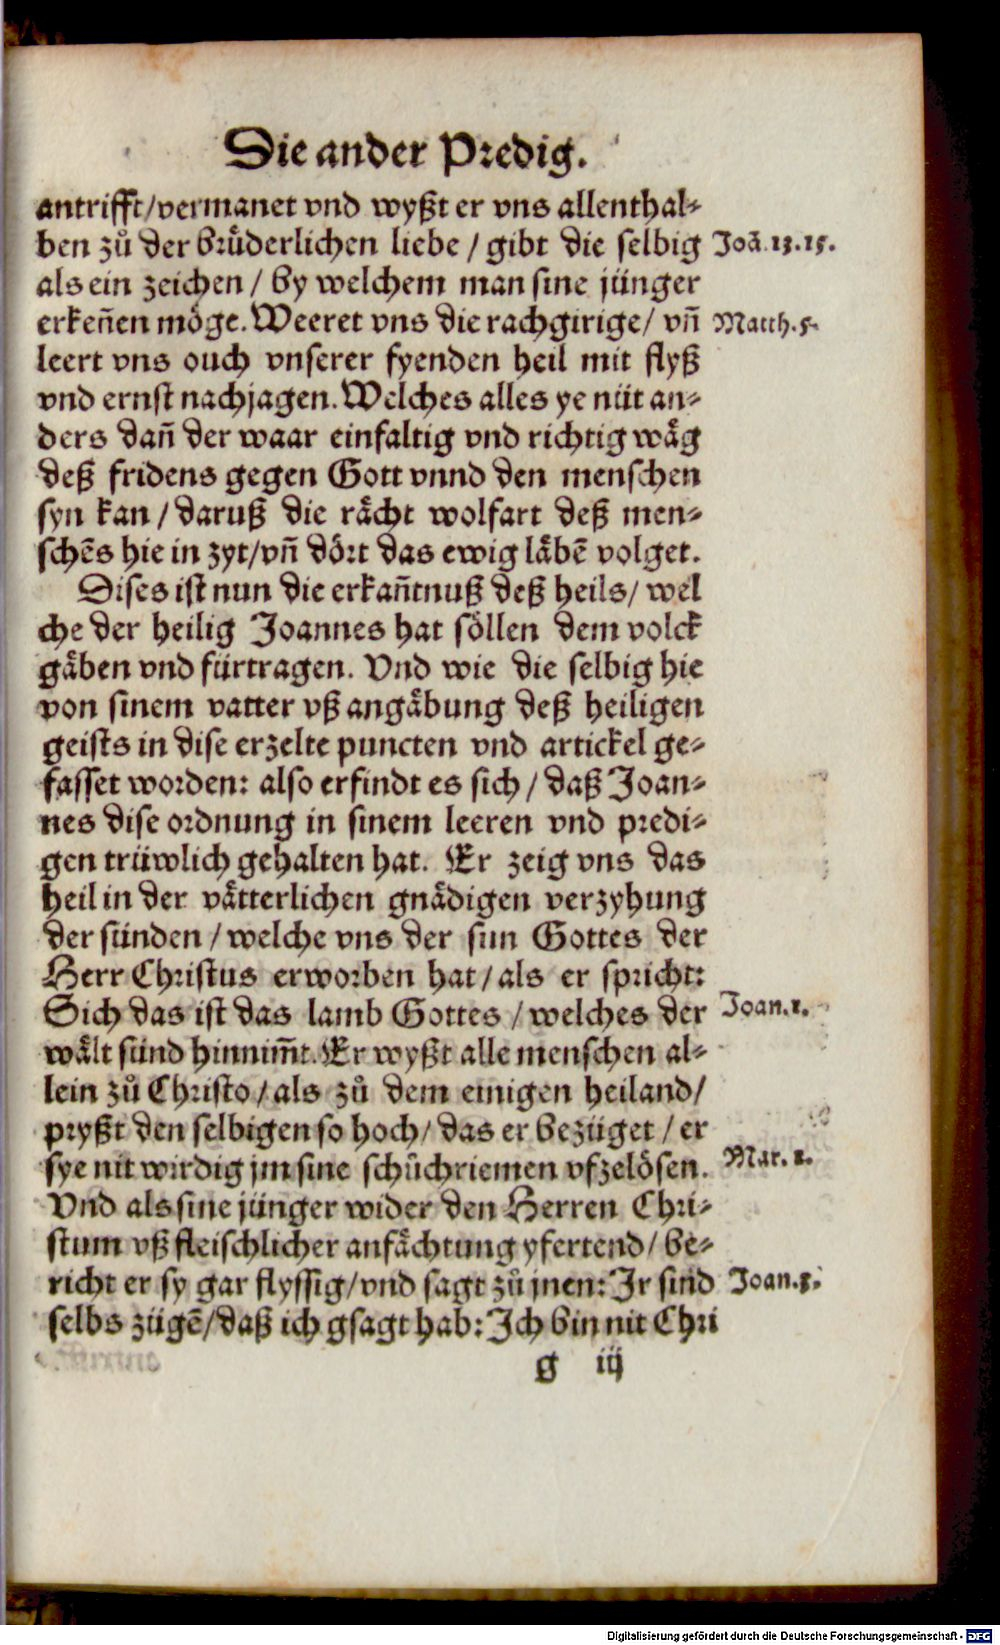 Die ander Predig.
antrifft/vermanet vnd wyßt er vns allenthal⸗
ben zů der brüderlichen liebe / gibt die selbig Joã.13.15.
als ein zeichen / by welchem man sine jünger
erkeñen möge. Weeret vns die rachgirige/ vñ Matth.5.
leert vns ouch vnserer fyenden heil mit flyß
vnd ernst nachjagen. Welches alles ye nüt an⸗
ders dañ der waar einfaltig vnd richtig wäg
deß fridens gegen Gott vnnd den menschen
syn kan / daruß die rächt wolfart deß men⸗
schẽs hie in zyt/vñ dört das ewig läbẽ volget.
Dises ist nun die erkañtnuß deß heils/ wel
che der heilig Joannes hat söllen dem volck
gäben vnd fürtragen. Vnd wie die selbig hie
von sinem vatter vß angäbung deß heiligen
geists in dise erzelte puncten vnd artickel ge⸗
fasset worden: also erfindt es sich / daß Joan⸗
nes dise ordnung in sinem leeren vnd predi⸗
gen trüwlich gehalten hat. Er zeig vns das
heil in der vätterlichen gnädigen verzyhung
der sünden / welche vns der sun Gottes der
Herr Christus erworben hat / als er spricht:
Sich das ist das lamb Gottes / welches der Joan.1.
wält sünd hinnim̃t. Er wyßt alle menschen al⸗
lein zů Christo / als zů dem einigen heiland/
pryßt den selbigen so hoch/ das er bezüget / er
sye nit wirdig jm sine schůchriemen vfzelösen. Mar.1.
Vnd als sine jünger wider den Herren Chri⸗
stum vß fleischlicher anfächtung yfertend/ be⸗
richt er sy gar flyssig/vnd sagt zů jnen: Jr sind Joan.3.
selbs zügẽ/daß ich gsagt hab: Jch bin nit Chri
g iij
Digitalisierung gefördert durch die Deutsche Forschungsgemeinschaft - DFG